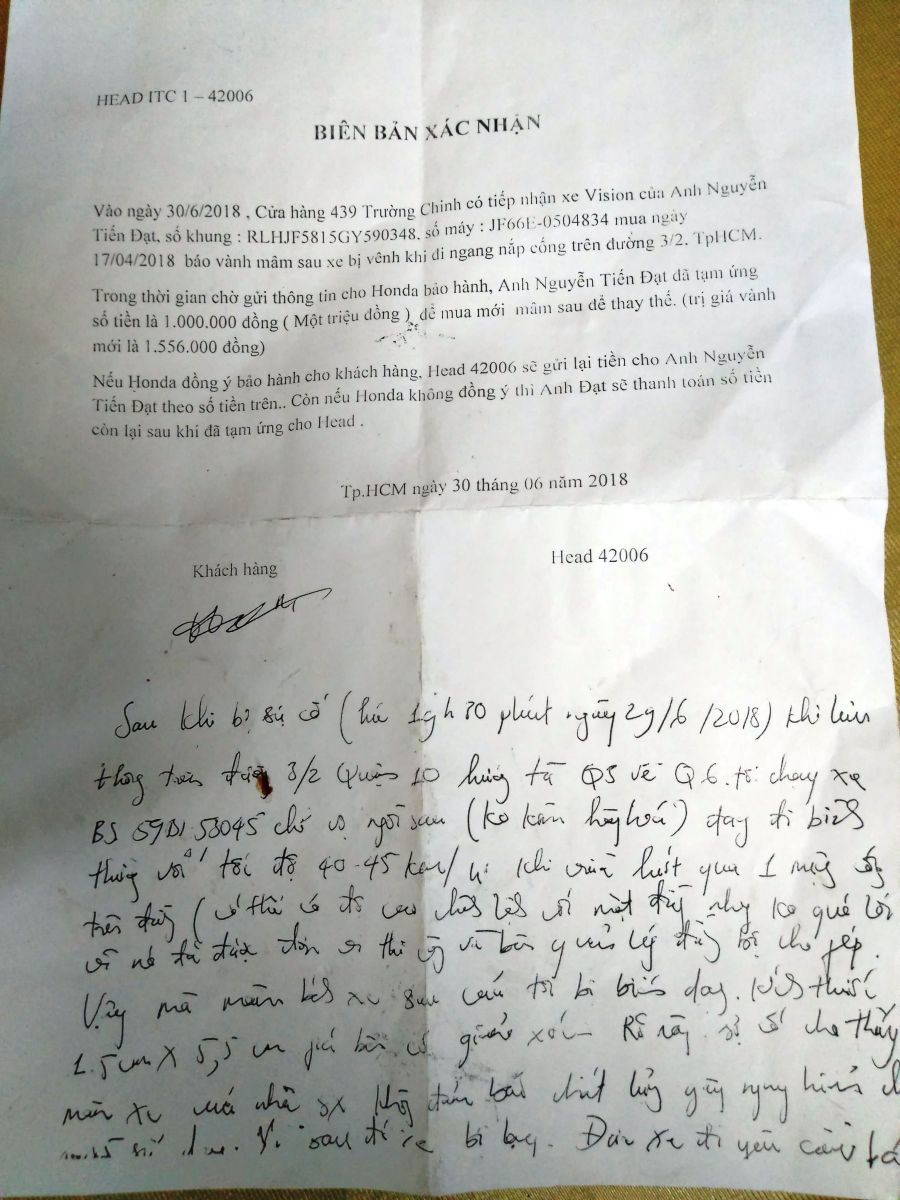 HEAD ITC 1 – 42006
BIÊN BẢN XÁC NHẬN
Vào ngày 30/6/2018 , Cửa hàng 439 Trường Chinh có tiếp nhận xe Vision của Anh Nguyễn
Tiến Đạt, số khung : RLHJF5815GY590348, số máy : JF66E-0504834 mua ngày
17/04/2018 báo vành mâm sau xe bị vênh khi đi ngang nắp cống trên đường 3/2. TpHCM.
Trong thời gian chờ gửi thông tin cho Honda bảo hành, Anh Nguyễn Tiến Đạt đã tạm ứng
số tiền là 1.000.000 đồng ( Một triệu đồng ) để mua mới mâm sau để thay thế. (trị giá vành
mới là 1.556.000 đồng)
Nếu Honda đồng ý bảo hành cho khách hàng, Head 42006 sẽ gửi lại tiền cho Anh Nguyễn
Tiến Đạt theo số tiền trên.. Còn nếu Honda không đồng ý thì Anh Đạt sẽ thanh toán số tiền
còn lại sau khi đã tạm ứng cho Head .
Tp.HCM ngày 30 tháng 06 năm 2018
Khách hàng
Head 42006
Sau khi bị sự cố ( 19h30 phút ngày 29/6/2018) khi lưu
thông trên đường 3/2 Quận 10 hướng từ Q5 về Q.6. tôi chạy xe
BS 59D1 53045 chở vợ ngồi sau (ko hàng hoá) đang đi bình
thường với tốc độ 40-45 km/h khi vừa lướt qua 1 miệng cống
trên đường ( có thể có độ cao chênh lệch với mặt đường nhưng ko quá lớn
vì nó đã được đơn vị thi công và quản lý đường bộ cho phép.
Vậy mà mâm bánh xe sau của tôi bị biến dạng. Kích thước
1.5cm x 5,5 cm xóc. Rõ ràng sự cố cho thấy
mâm xe của nhà sx không đảm bảo chất lượng gây nguy hiểm
Vì sau đó xe bị Đưa xe đi yêu cầu